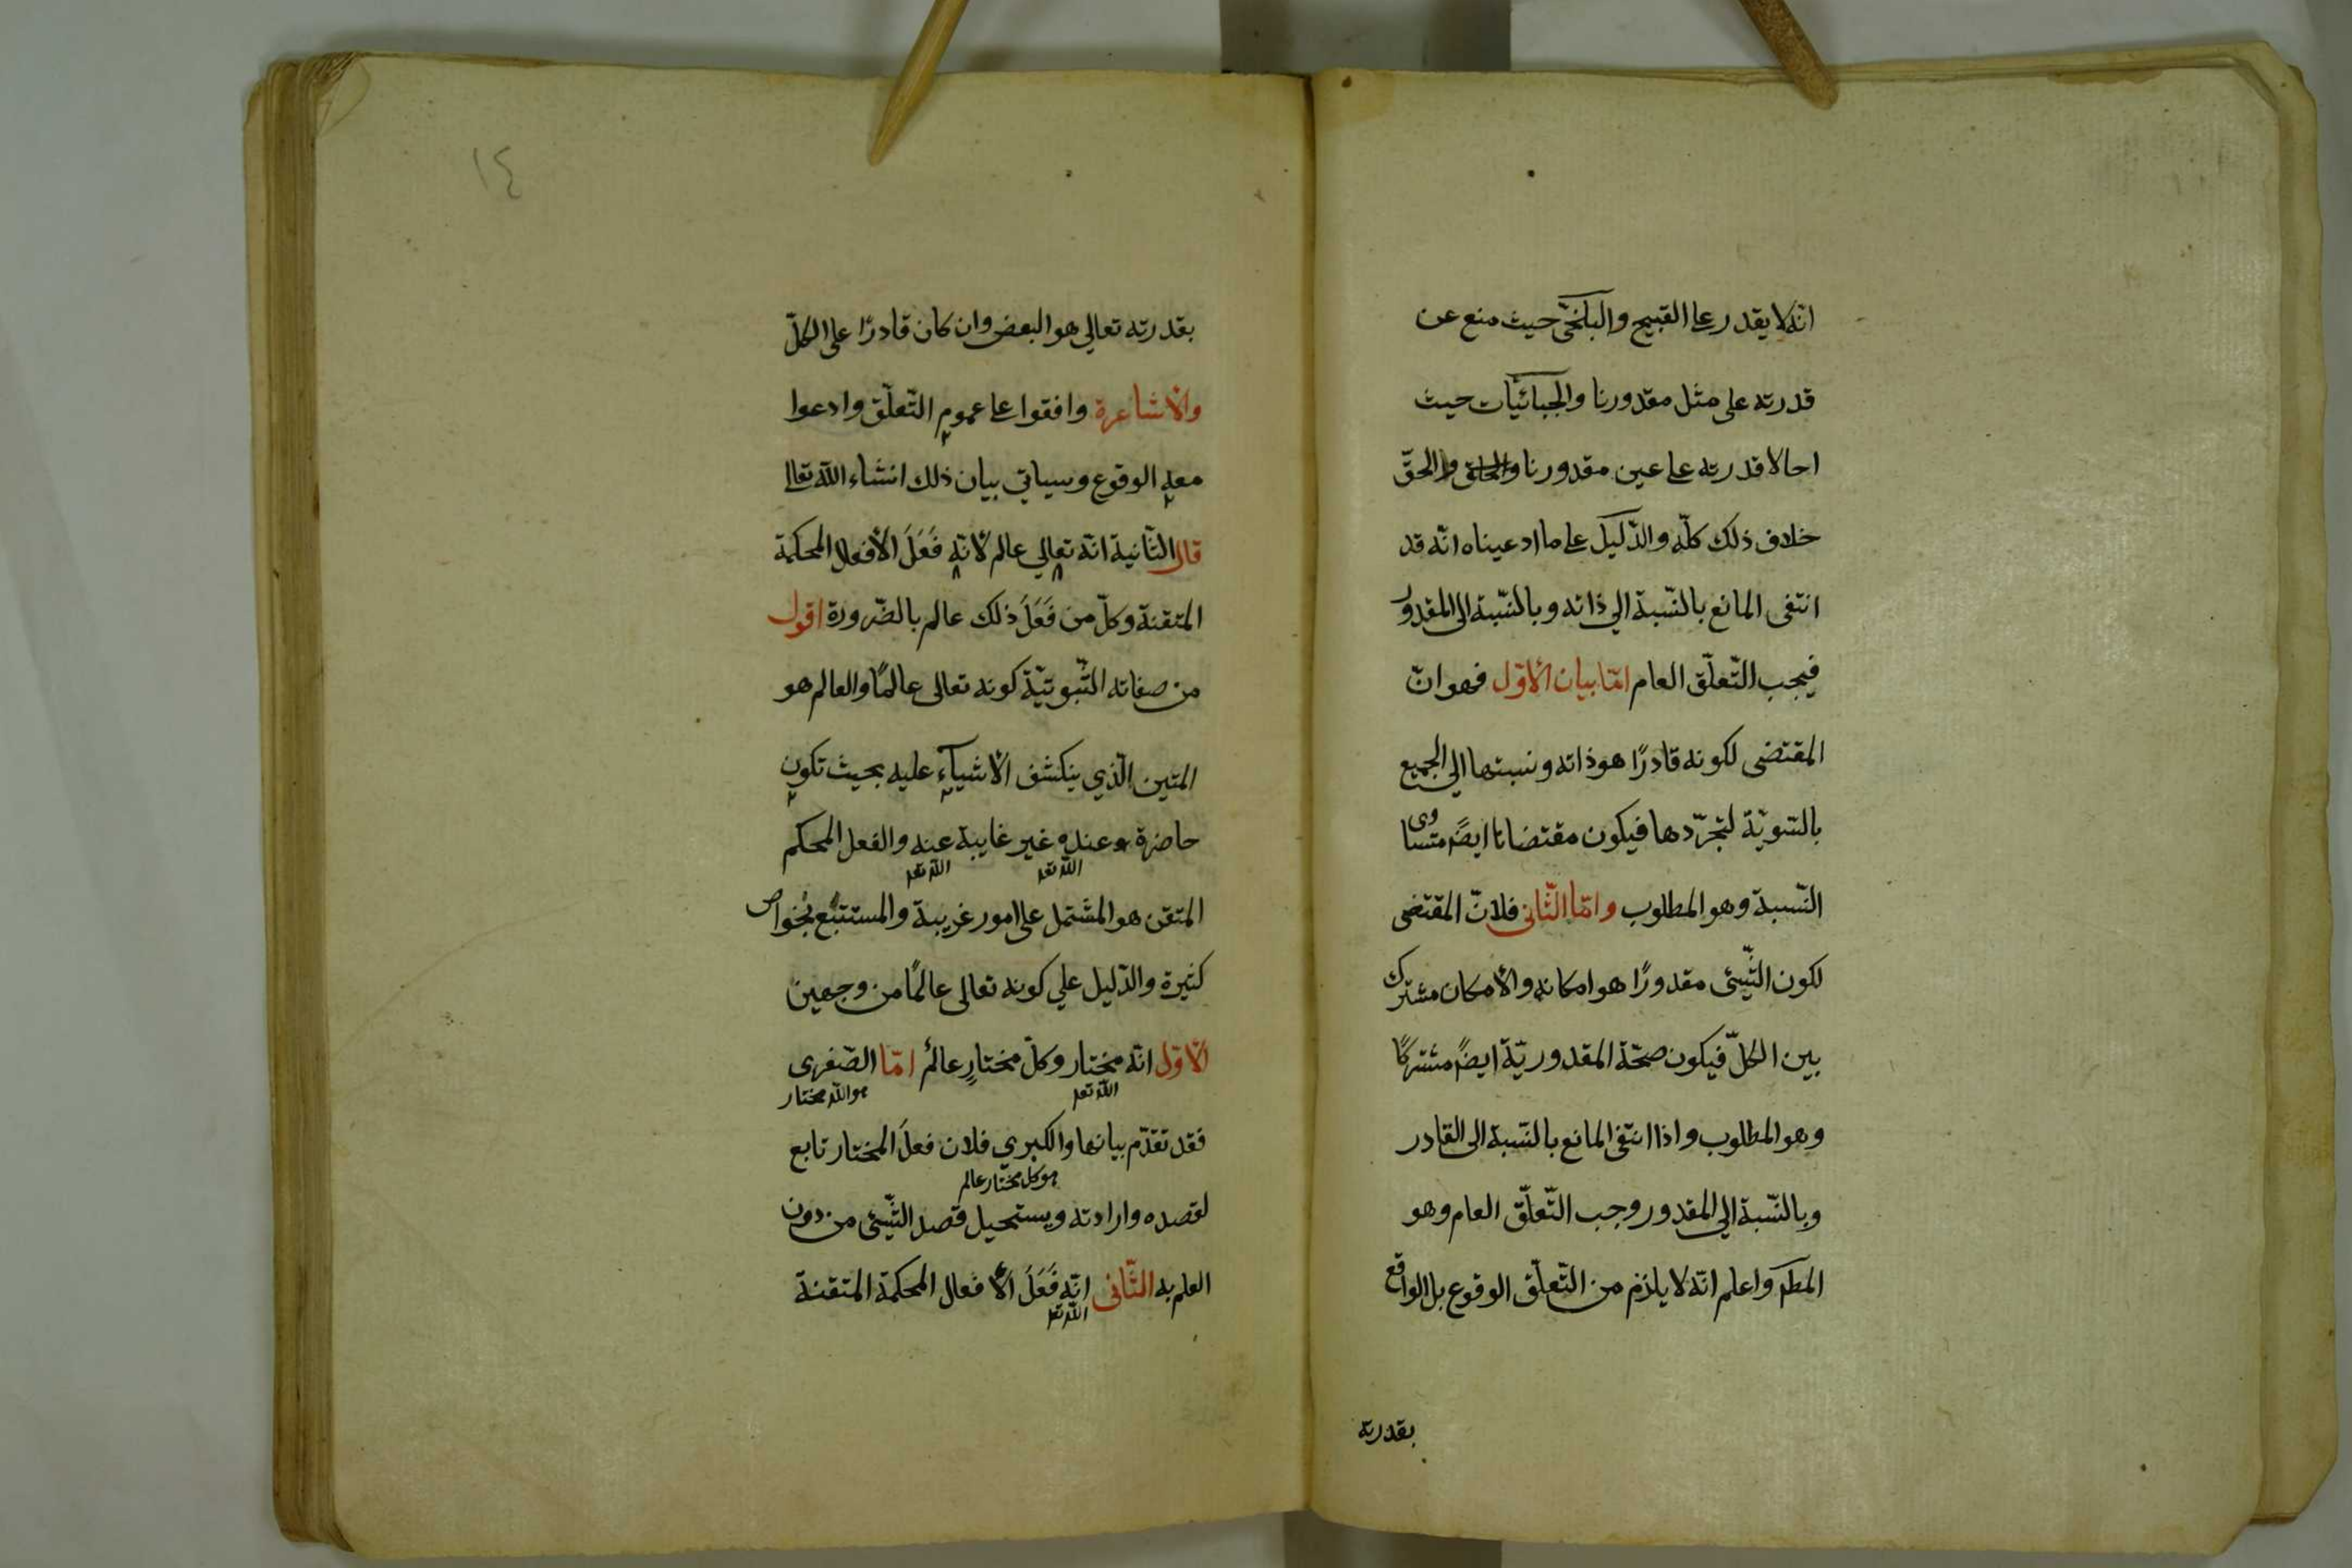 انّه لا يقدر على القبيح والبلخيّ حيث منع عن
قدرته على مثل مقدورنا والجبائيّات حيث
احالا قدرته على عين مقدورنا والحق والحقّ
خلاف ذلك كلّه والدّليل على ما ادعيناه انّه قد
انتفى المانع بالنّسبة الي ذاته وبالنّسبة الى المقدور
فيجب التّعلّق العام امّا بيان الأوّل فهو انّ
المقتضى لكونه قادرًا هو ذاته ونسبتها الي الجميع
بالسّويّة لتجرّدها فيكون مقتضاها ايضًا متساوى
النّسبة وهو المطلوب وامّا الثّانى فلانّ المقتضى
لكون الشّيئ مقدورًا هو امكانه والأمكان مشترك
بين الكلّ فيكون صحّة المقدوريّة ايضًا مشتركًا
وهو المطلوب واذا انتفى المانع بالنّسبة الى القادر
وبالنّسبة الي المقدور وجب التّعلّق العام وهو
المطم واعلم انّه لا يلزم من التّعلّق الوقوع بل الواقع
بقدرته
١٤
بقدرته تعالي هو البعض وان كان قادرًا على الكلّ
والأشاعرة وافقوا على عموم التّعلّق وادعوا
معه الوقوع وسياتي بيان ذلك انشاء الله تعالى
قال الثّانية انّه تعالي عالم لأنّه فَعَلَ الأفعال المحكمة
المتقنة وكلّ من فَعَلَ ذلك عالم بالضّرورة اقول
من صفاته الثّبوتيّة كونه تعالى عالمًا والعالم هو
المتين الّذي ينكشف الأشيآء عليه بحيث تكون
حاضرة عنده غير غايبة عنه والفعل المحكم
الله تعم الله تعم
المتقن هو المشتمل على امور غريبة والمستتبع بخواص
كثيرة والدّليل علي كونه تعالى عالمًا من وجهين
الأوّل انّه مختار وكلّ مختارٍ عالمٌ امّا الصّغرى
الله تعم هو الله مختار
فقد تقدّم بيانها والكبري فلان فعلَ المختار تابع
هو كل مختار عالم
لقصده وارادته ويستحيل قصد الشّيئ من دون
العلم به الثّانى انّه فَعَلَ الأفعال المحكمة المتقنة
الله تعم